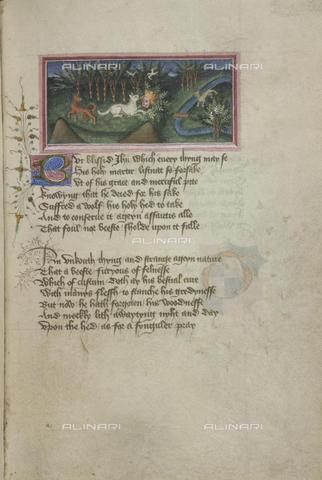 ALINARI
But blissid Jhu Which every thyng may se
His holy martir listnat to forsake
But of his grace and merciful pite
Knowyng that he deied for his sake
Suffred a wolf his holy hed to take
And to conserve it ageyn assautis alle
That foul nor beeste sholde upon it falle
ALINARI
An unkouth thyng and strange ageyn nature
That a beeste furyous of felnesse
Which of custum doth ay his bestial cure
With mannys flessh to stanche his gredynesse
But now he hath forgoten his woodnesse
And meekly lith awaytyng nyht and day
Upon the hed as for a synguler pray
ALINARI
ALINARI